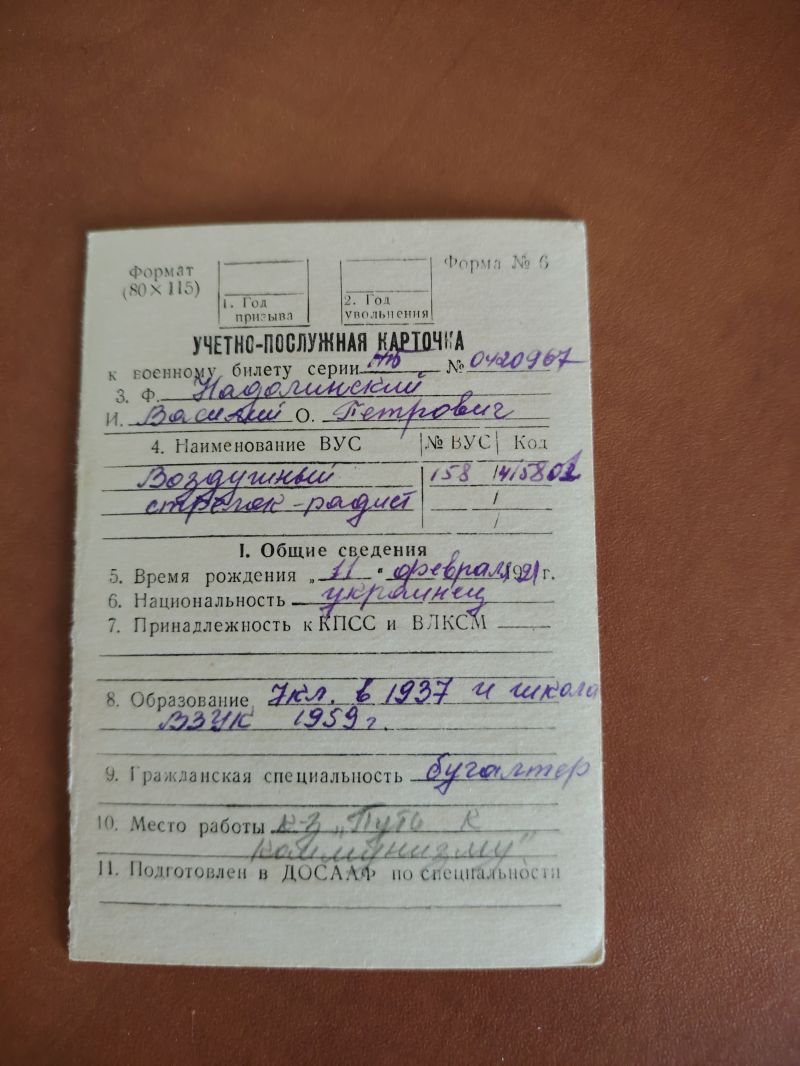 Формат
(80×115)
Форма № 6
1. Год
призыва
2. Год
увольнения
УЧЕТНО-ПОСЛУЖНАЯ КАРТОЧКА
к военному билету серии № 0420967
3. Ф. Надолинский
И. Василий О. Петрович
4. Наименование ВУС № ВУС Код
Воздушный 158
стрелок-радист
I. Общие сведения
5. Время рождения „11" февраля 1921 г.
6. Национальность украинец
7. Принадлежность к КПСС и ВЛКСМ
8. Образование 7кл. в 1937 и школа
ВЗУК 1959 г.
9. Гражданская специальность бугалтер
10. Место работы к-з „Путь к
коммунизму"
11. Подготовлен в ДОСААФ по специальности